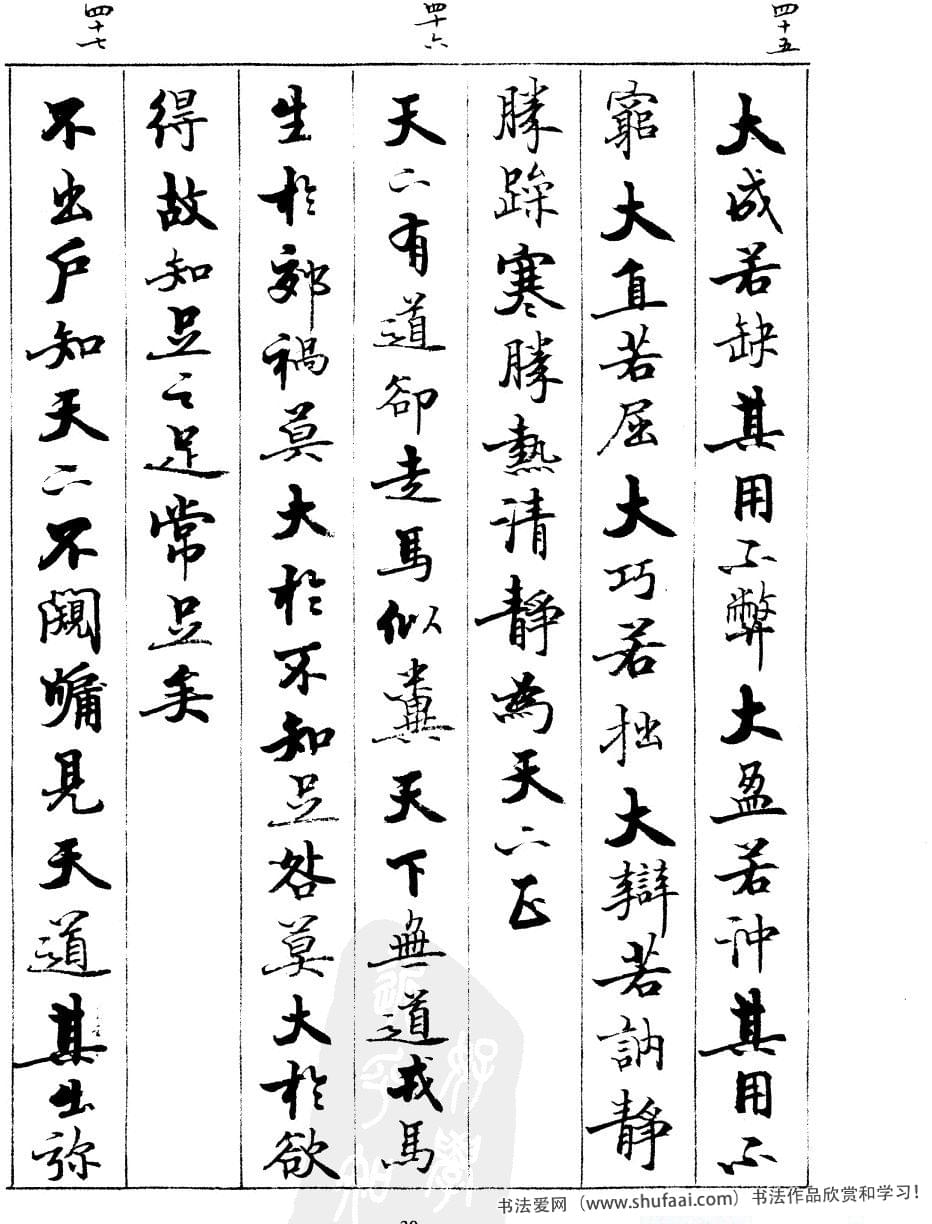 四十五
大成若缺其用不弊大盈若沖其用不
窮大直若屈大巧若拙大辯若訥靜
勝躁寒勝熱清靜為天下正
四十六
天下有道卻走馬似糞天下無道戎馬
生於郊禍莫大於不知足咎莫大於欲
得故知足之足常足矣
四十七
不出戶知天下不闚牖見天道其出弥
书法爱网（www.shufaai.com）书法作品欣赏和学习！